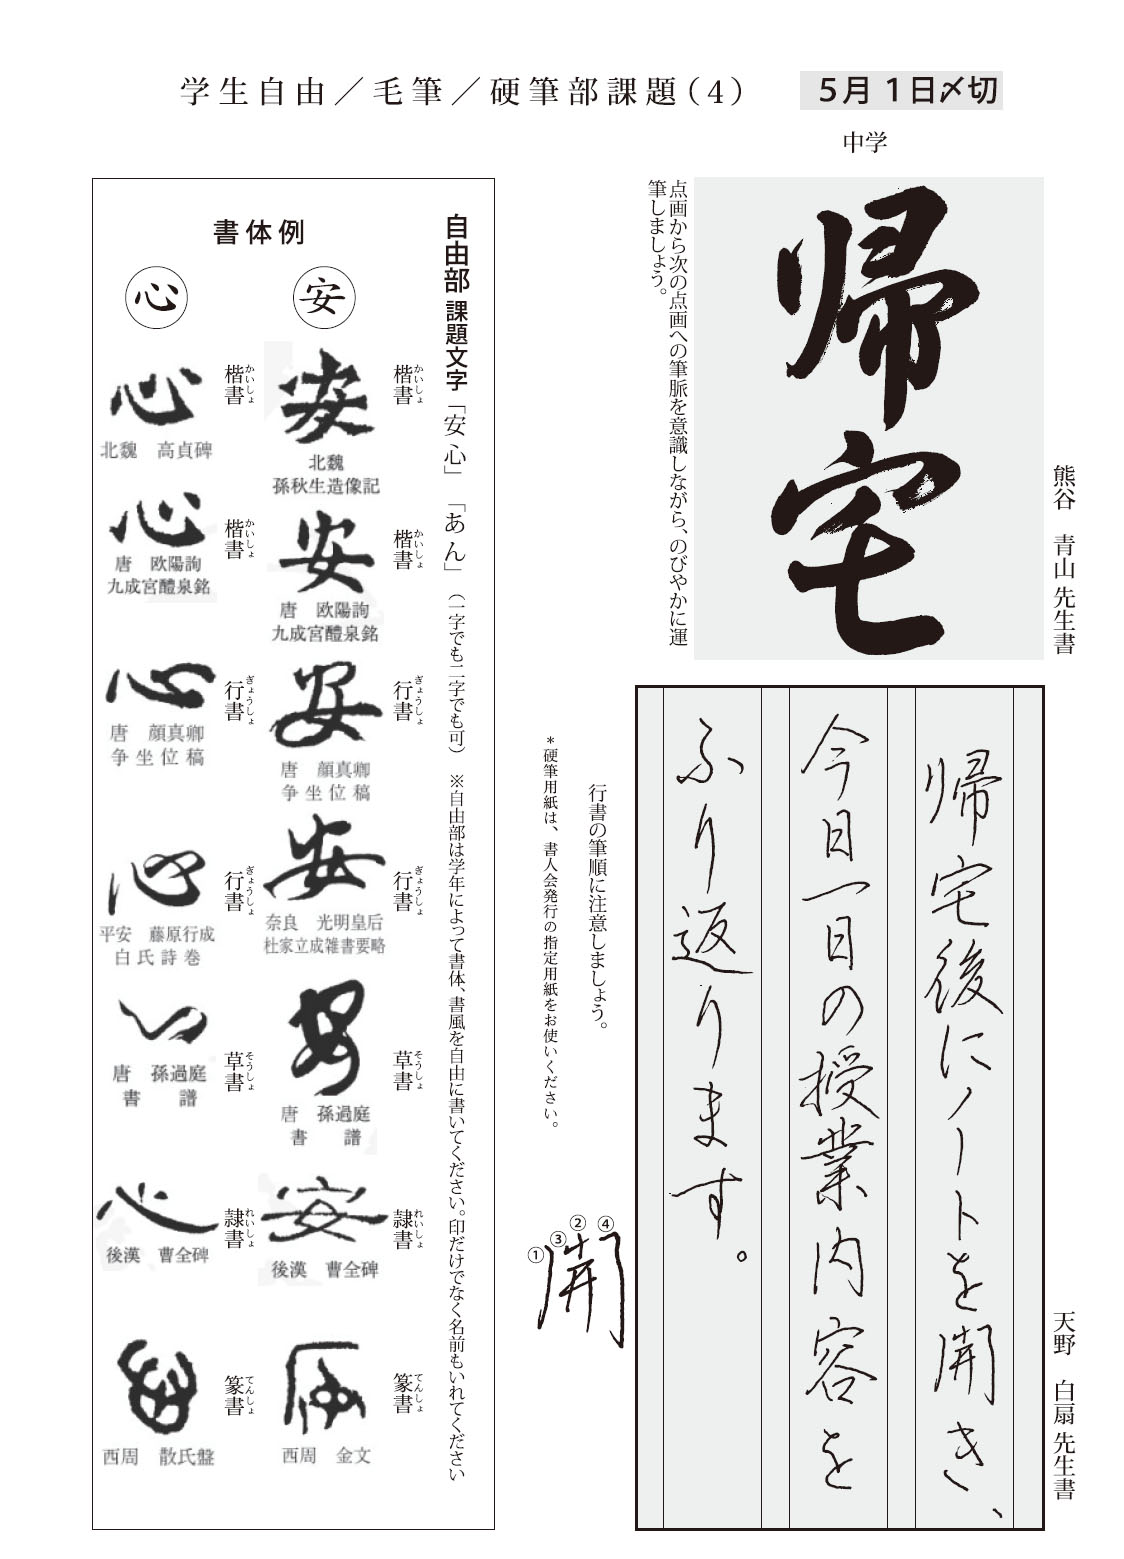 学生自由／毛筆／硬筆部課題（4）
5月1日〆切
中学
帰宅
熊谷　青山 先生書
点画から次の点画への筆脈を意識しながら、のびやかに運
筆しましょう。
帰宅後にノートを開き、
今日一日の授業内容を
ふり返ります。
天野　白扇 先生書
行書の筆順に注意しましょう。
＊硬筆用紙は、書人会発行の指定用紙をお使いください。
①③②④
開
自由部 課題文字「安心」「あん」（一字でも二字でも可）　※自由部は学年によって書体、書風を自由に書いてください。印だけでなく名前もいれてください
書体例
安
楷書 かいしょ
安
北魏
孫秋生造像記
楷書 かいしょ
安
唐　欧陽詢
九成宮醴泉銘
行書 ぎょうしょ
安
唐　顔真卿
争坐位稿
行書 ぎょうしょ
安
奈良　光明皇后
杜家立成雑書要略
草書 そうしょ
安
唐　孫過庭
書　譜
隷書 れいしょ
安
後漢　曹全碑
篆書 てんしょ
安
西周　金文
心
楷書 かいしょ
心
北魏　高貞碑
楷書 かいしょ
心
唐　欧陽詢
九成宮醴泉銘
行書 ぎょうしょ
心
唐　顔真卿
争坐位稿
行書 ぎょうしょ
心
平安　藤原行成
白氏詩巻
草書 そうしょ
心
唐　孫過庭
書　譜
隷書 れいしょ
心
後漢　曹全碑
篆書 てんしょ
心
西周　散氏盤